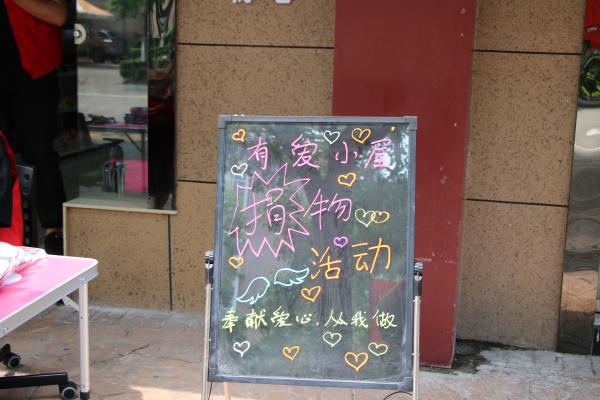 有爱小屋
捐物
活动
奉献爱心,从我做